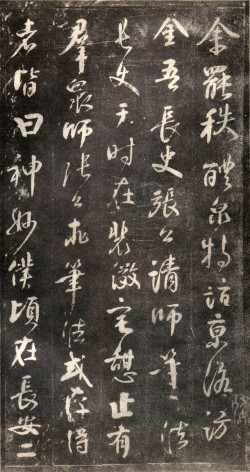 余罷秩醴泉特詣京洛訪
金吾長史張公請師筆法
長史于時在裴儆宅憩止有
群眾師張公求筆法或存得
者皆曰神妙僕頃在長安二